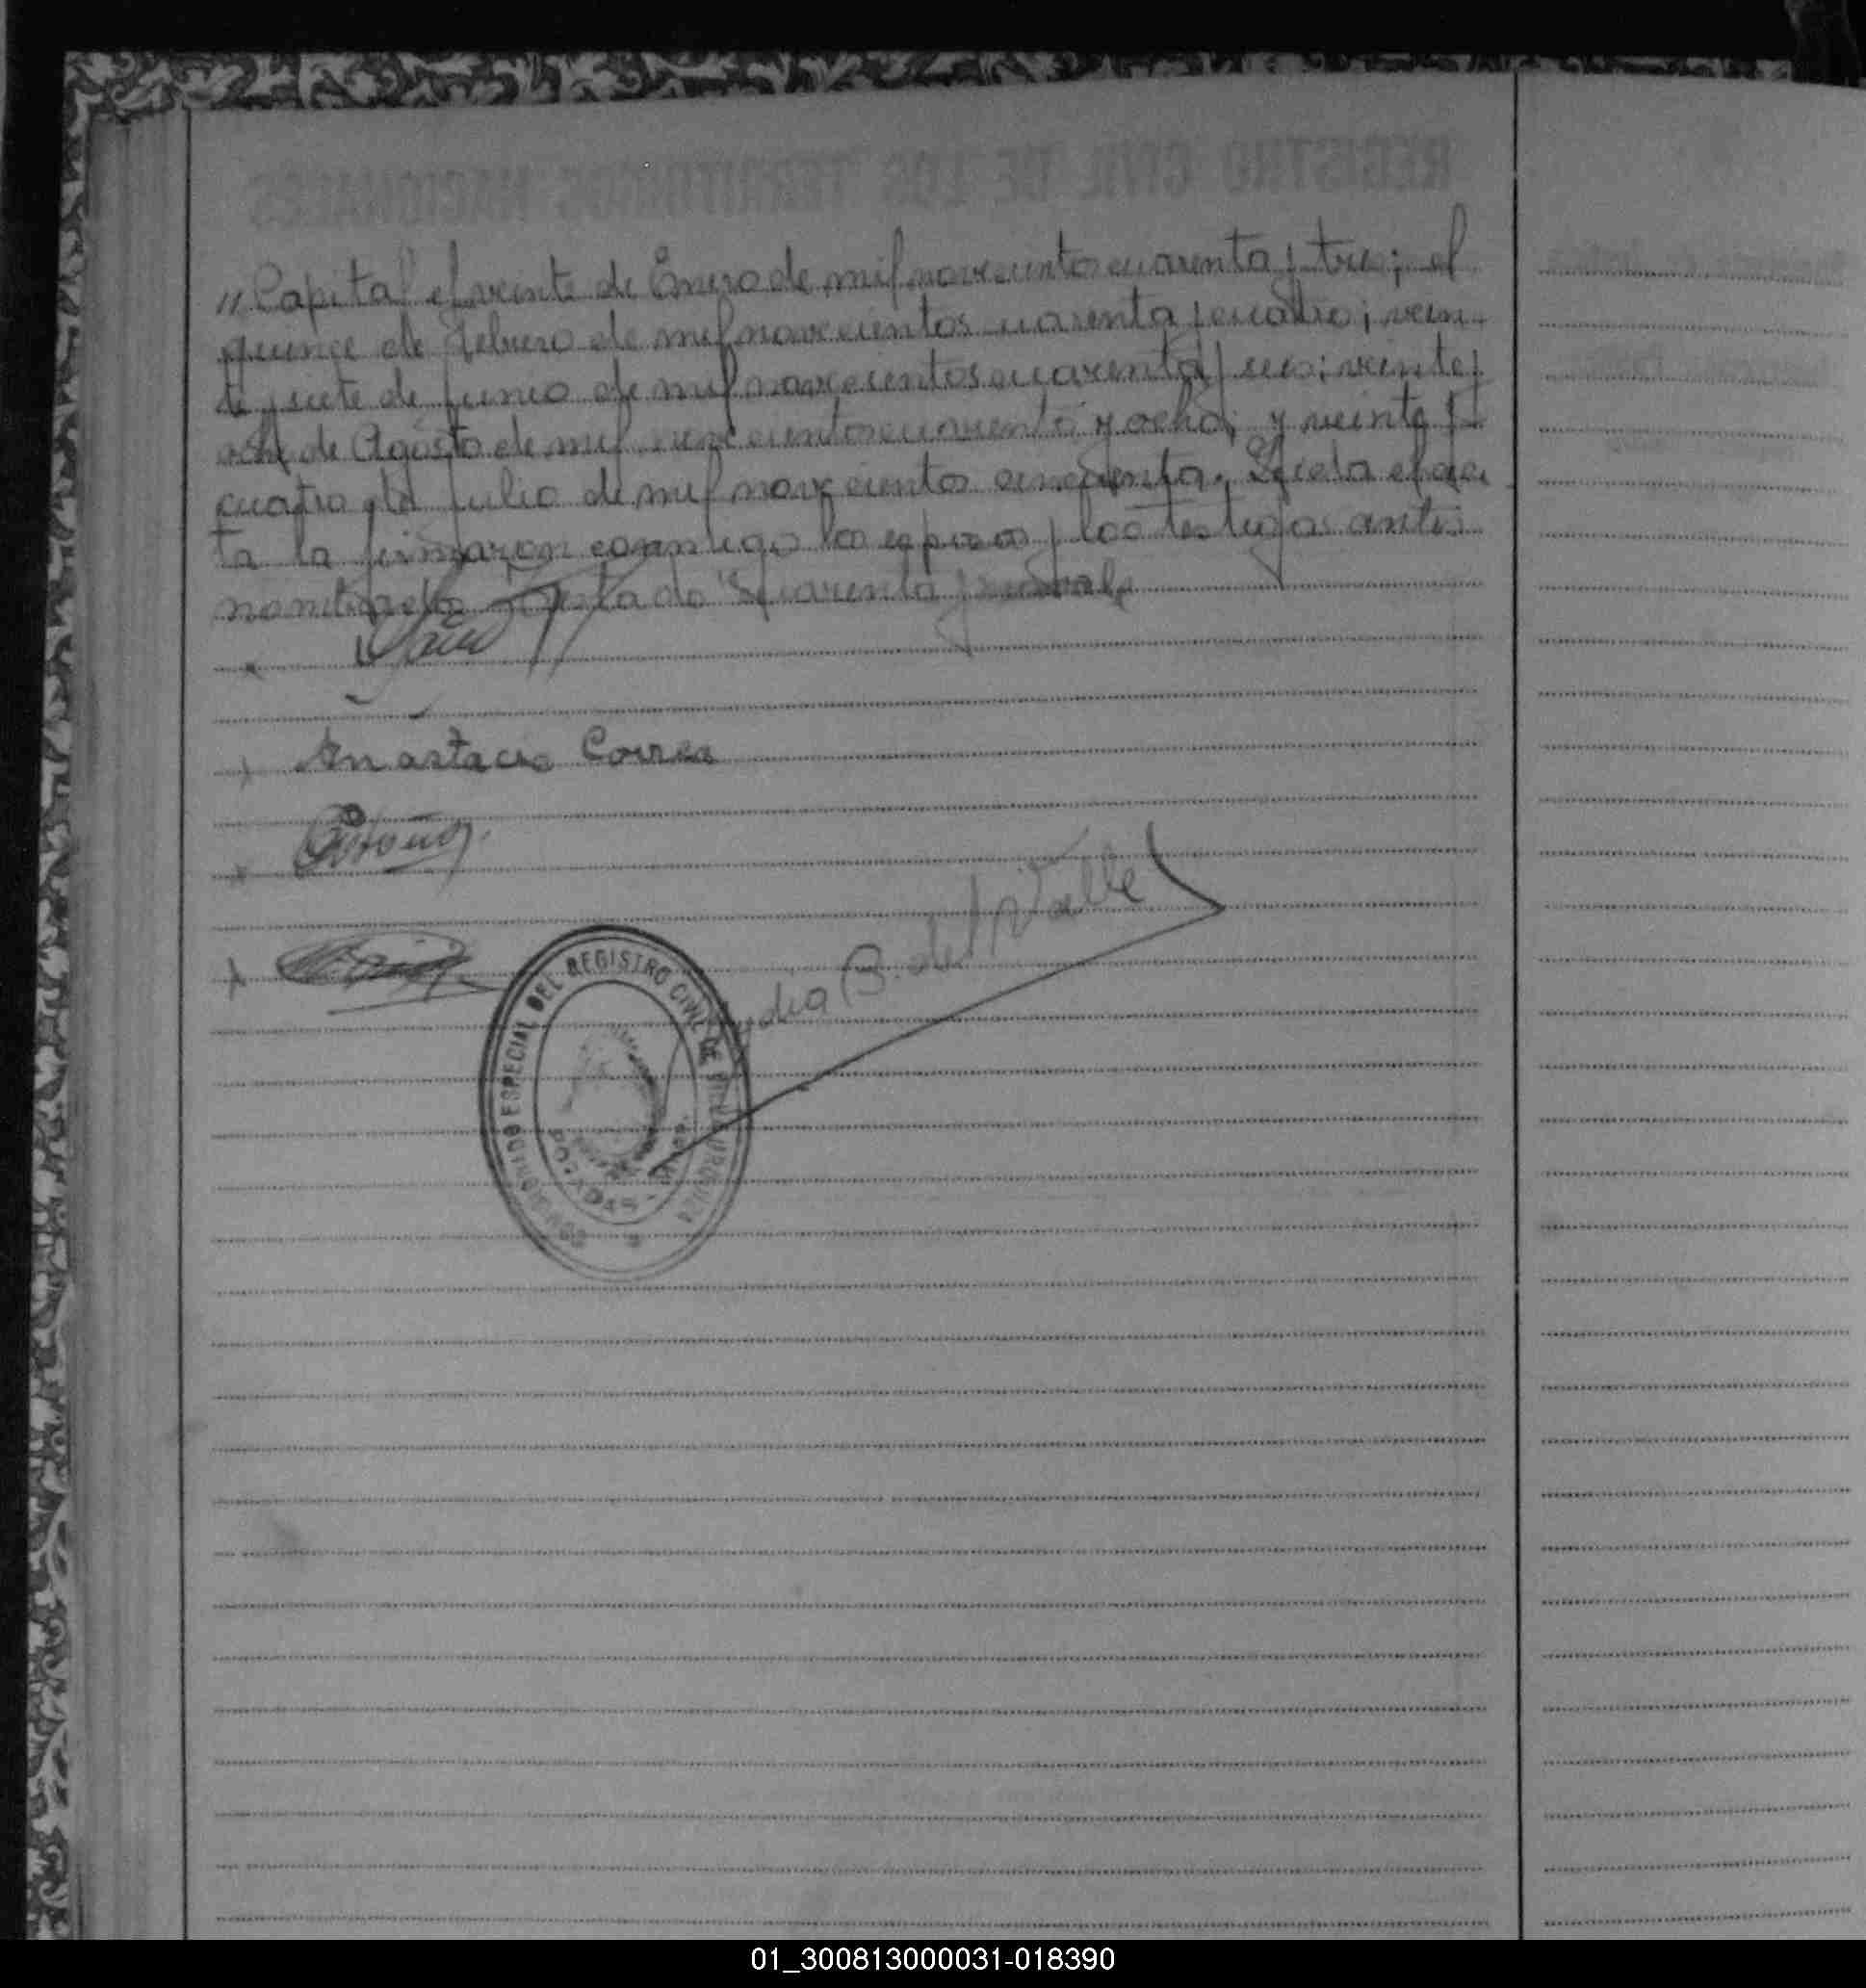 REGISTRO CIVIL DE LOS TERRITORIOS NACIONALES
"Capital el veinte de Enero de mil novecientos cuarenta y tres; el
quince de Febrero de mil novecientos cuarenta y cuatro; vein-
te y siete de Junio de mil novecientos cuarenta y seis; veinte y
ocho de Agosto de mil novecientos cuarenta y ocho; y veinte y
cuatro de Julio de mil novecientos cincuenta. Leida el ac
ta la firmaron conmigo los esposos y los testigos antes
nombrados cuarenta y vale
Anastacia Correa
B. del Valle
DEL REGISTRO CIVIL DE
ESPECIAL
POSADAS
01_300813000031-018390